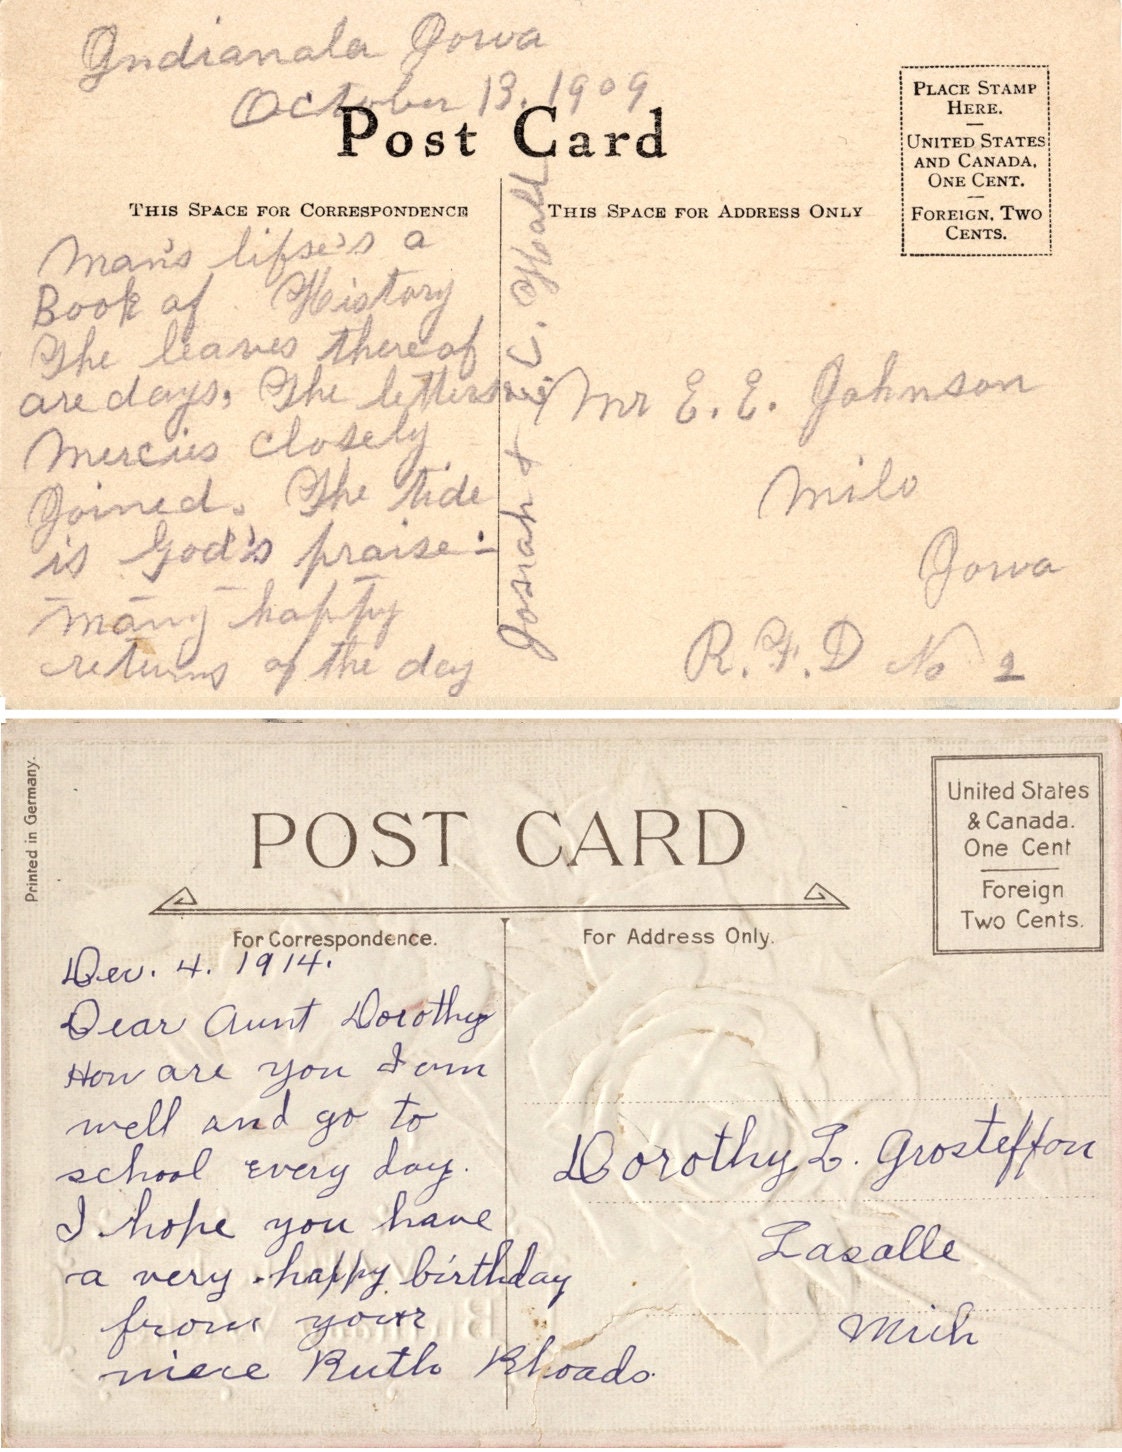 Indianala Iowa
October 13. 1909
Post Card
PLACE STAMP
HERE.
UNITED STATES
AND CANADA,
ONE CENT.
FOREIGN, TWO
CENTS.
THIS SPACE FOR CORRESPONDENCE
THIS SPACE FOR ADDRESS ONLY
Man's lifse's a
Book of History
The leaves thereof
are days, The letters
Mercies closely
Joined. The tide
is God's praise :-
Many happy
returns of the day
Josiah &
Mr E. E. Johnson
Milo
Iowa
R.F.D No 2
Printed in Germany.
POST CARD
United States
& Canada.
One Cent
Foreign
Two Cents.
For Correspondence.
For Address Only.
Dec. 4. 1914.
Dear Aunt Dorothy
How are you I am
well and go to
school every day.
I hope you have
a very happy birthday
from your
niece Ruth Rhoads.
Dorothy L. Grosteffon
Lasalle
Mich